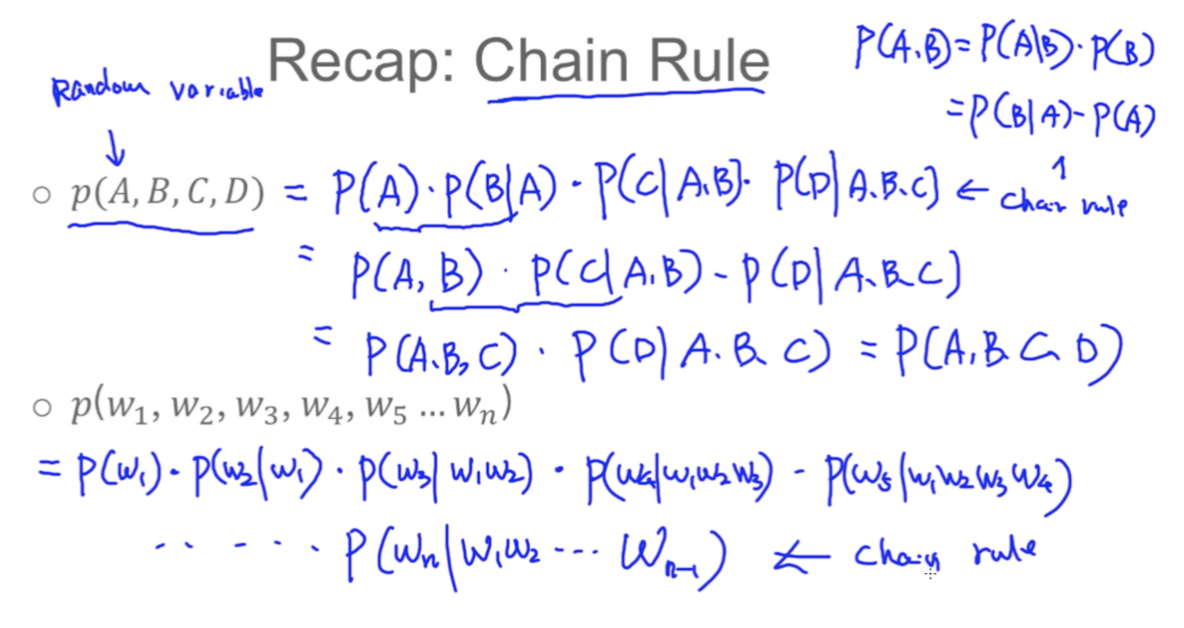 Recap: Chain Rule
P(A,B) = P(A|B)·P(B)
= P(B|A)-P(A)
Random variable
↓
↑
○ p(A, B, C, D) = P(A)·P(B|A)·P(C|A.B)· P(D|A.B.C) ← chain rule
= P(A, B)·P(C|A.B)-P(D|A.B.C)
= P(A.B,C)·P(D|A.B.C) = P(A,B.C,D)
○ p(w₁, w₂, w₃, w₄, w₅ … wₙ)
= P(w₁)·P(w₂|w₁)·P(w₃|w₁w₂)·P(w₄|w₁w₂w₃)-P(w₅|w₁w₂w₃w₄)
······ P(wₙ|w₁w₂···wₙ₋₁) ← chain rule